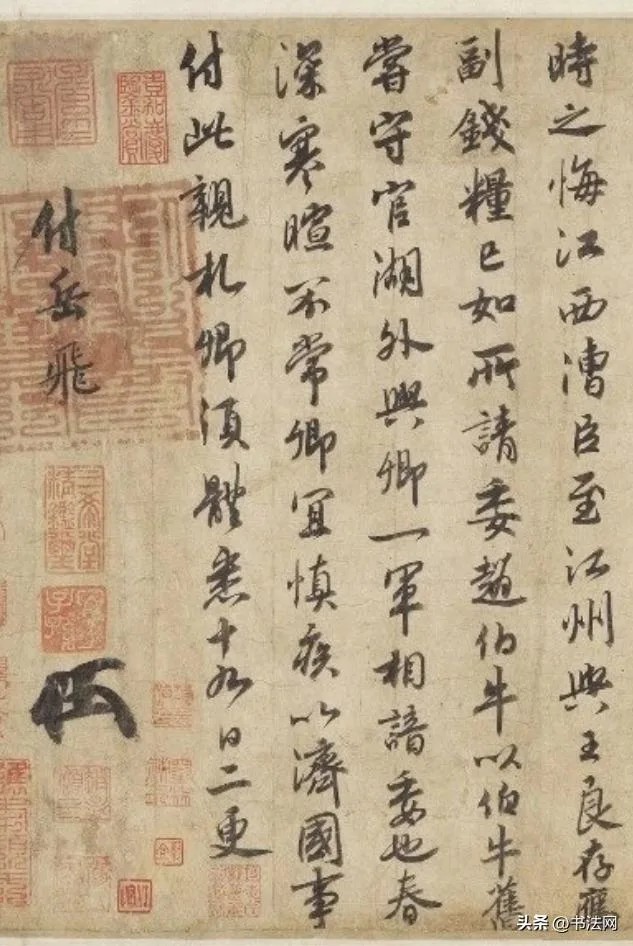 時之悔江西漕臣至江州與王良存應
副錢糧已如所請委趙伯牛以伯牛舊
嘗守官湖外與卿一軍相諳委也春
深寒暄不常卿宜慎疾以濟國事
付此親札卿須體悉十九日二更
付岳飛
頭条 @书法网